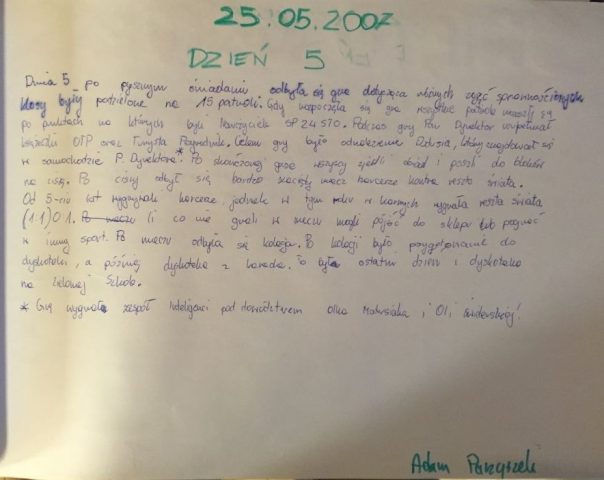 25.05.2007
DZIEŃ 5
Dnia 5 po pysznym śniadaniu odbyła się gra dotycząca różnych zajęć sprawnościowych
klasy były podzielone na 15 patroli. Gdy rozpoczęła się gra wszystkie patrole ruszyły
po punktach na których byli Nauczyciele SP 24 STO. Podczas gry Pan Dyrektor wypełniał
książeczki OTP oraz Turysta Przyrodnik. Celem gry było odnalezienie Dzisia, który znajdował się
w samochodzie P. Dyrektora.* Po skończonej grze wszyscy zjedli obiad i poszli do bloków
na ciszę. Po ciszy odbył się bardzo zacięty mecz harcerze kontra reszta świata.
Od 5-ciu lat wygrywali harcerze, jednak w tym roku w karnych wygrała reszta świata
(1:1) 0:1. Po meczu Ci co nie grali w meczu mogli pójść do sklepu lub pograć
w inny sport. Po meczu odbyła się kolacja. Po kolacji było przygotowanie do
dyskoteki, a później dyskoteka z karaoke. To był ostatni dzień i dyskoteka
na zielonej Szkole.
* Grę wygrał zespół Inteligenci pod dowództwem Olka Matusiaka i Oli Świderskiej!
Adam Parzyszek